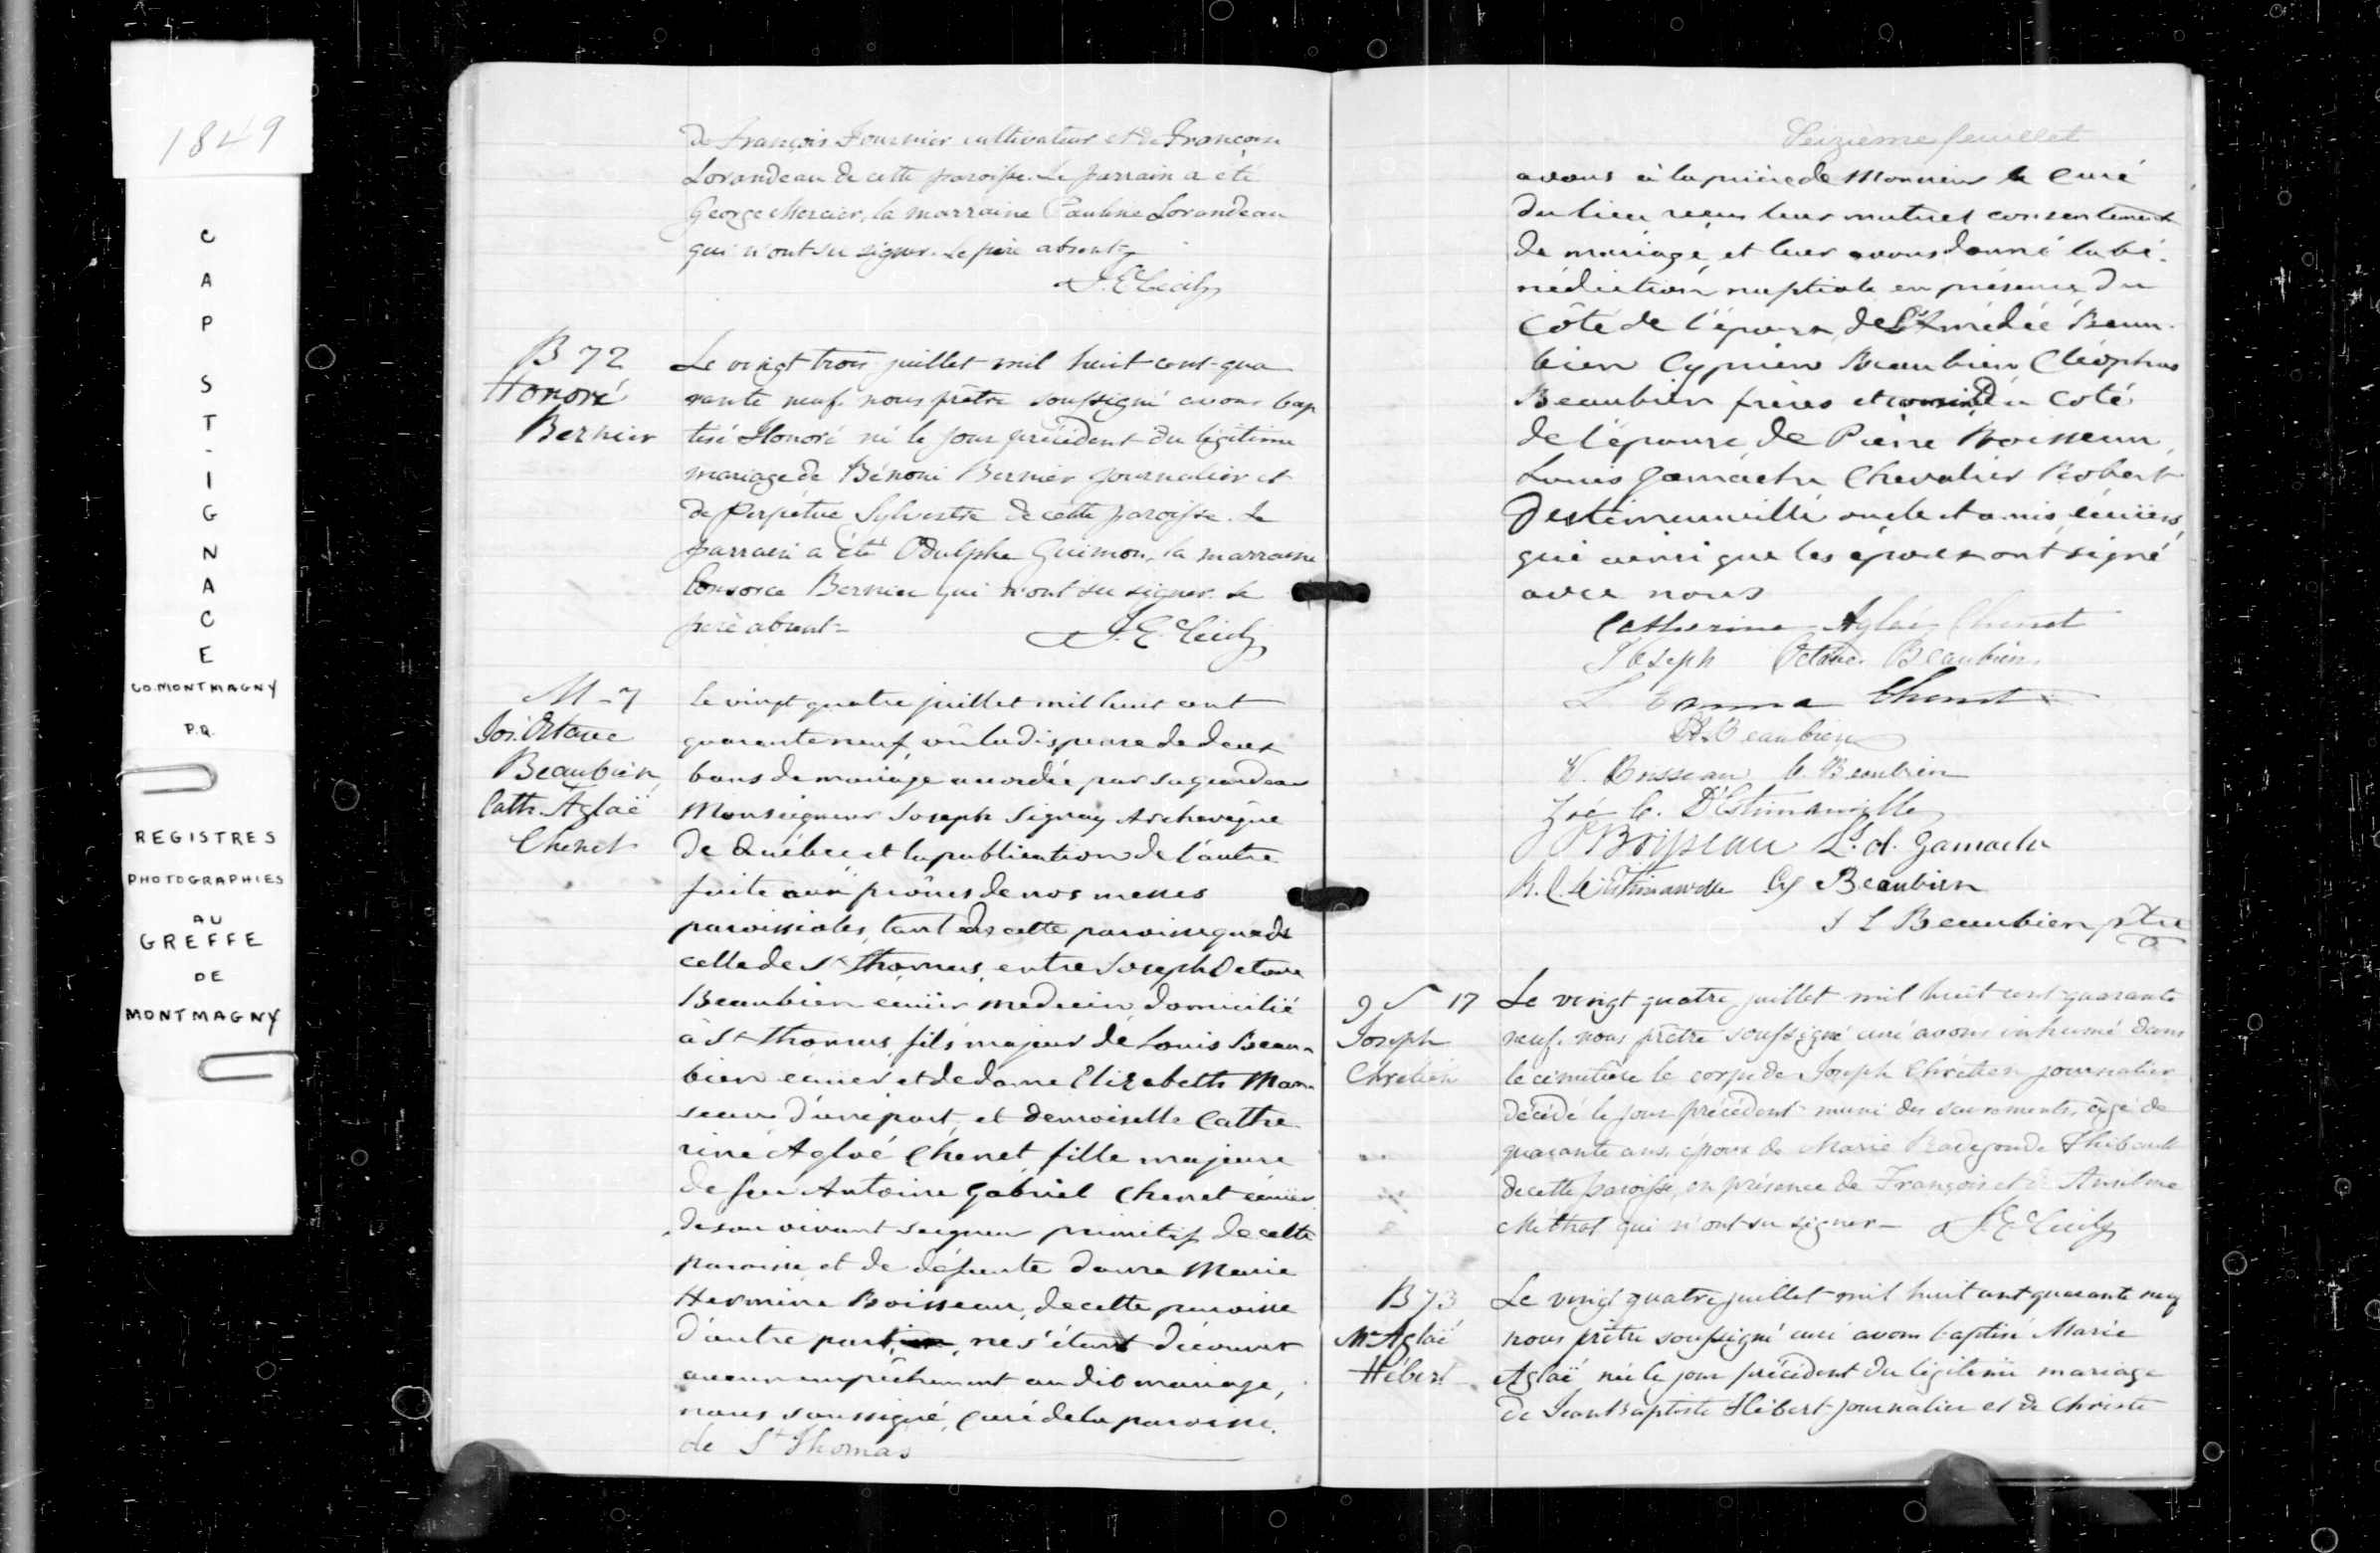 1849
CAP ST-IGNACE
CO. MONTMAGNY
P.Q.
REGISTRES
PHOTOGRAPHIES
AU
GREFFE
DE
MONTMAGNY
de François Fournier cultivateur et de Françoise
Lorandeau de cette paroisse. Le parrain a été
George Mercier, la marraine Pauline Lorandeau
qui n'ont su signer. Le père absent
J. E. Cecil
B 72
Honoré
Bernier
Le vingt trois juillet mil huit cent qua
rante neuf nous prêtre soussigné avons bap
tisé Honoré né le jour précédent du légitime
mariage de Bénoni Bernier journalier et
de Perpétue Sylvestre de cette paroisse. Le
parrain a été Odulphe Guimon, la marraine
Consorce Bernier qui n'ont su signer. Le
père absent
J. E. Cecil
M - 7
Jos. Octave
Beaubien
Cath. Aglaë
Chenet
le vingt quatre juillet mil huit cent
quarante neuf, vû la dispense de deux
bans de mariage accordée par sa grandeur
Monseigneur Joseph Signay Archevêque
de Québec et la publication de l'autre
faite aux prônes de nos messes
paroissiales, tant de cette paroisse que de
celle de St Thomas, entre Joseph Octave
Beaubien écuier médecin domicilié
à St Thomas, fils majeur de Louis Beau-
bien ecuier et de dame Elizabeth Man-
seau d'une part, et demoiselle Cathe
rine Aglaé Chenet fille majeure
de feu Antoine Gabriel Chenet écuier
de son vivant seigneur primitif de cette
paroisse et de défunte dame Marie
Hermine Boisseau, de cette paroisse
d'autre part, ne s'étant découvert
aucun empêchement au dit mariage,
nous soussigné, curé de la paroisse
de St Thomas
Seizième feuillet
avons à la prière de Monsieur le Curé
du lieu reçu leur mutuel consentement
de mariage, et leur avons donné la bé-
nédiction nuptiale en présence du
côté de l'époux, de Ls Amédée Beau-
bien Cyprien Beaubien Cléophas
Beaubien frères et du coté
de l'épouse de Pierre Boisseau,
Louis Gamache Chevalier Robert
Destimauville oncle et amis écuiers,
qui ainsi que les époux ont signé
avec nous
Catherine Aglaé Chenet
Joseph Octave Beaubien
L Emma Chenet
Beaubien
Rousseau C. Beaubien
Zoé C. D'Estimauville
P Boisseau Ls. A. Gamache
R. C. D'Estimauville Cy Beaubien
J L Beaubien ptre
S 17
Joseph
Chrétien
Le vingt quatre juillet mil huit cent quarante
neuf. nous prêtre soussigné curé avons inhumé dans
le cimetière le corps de Joseph Chrétien journalier
décédé le jour précédent muni des sacrements, âgé de
quarante ans, époux de Marie Radegonde Thibault
de cette paroisse, en présence de François et de Anselme
Méthot qui n'ont su signer - J. E. Cecil
B 73
Me Aglaë
Hébert
Le vingt quatre juillet mil huit cent quarante neuf
nous prêtre soussigné curé avons baptisé Marie
Aglaë née le jour précédent du légitime mariage
de Jean Baptiste Hébert journalier et de Christe